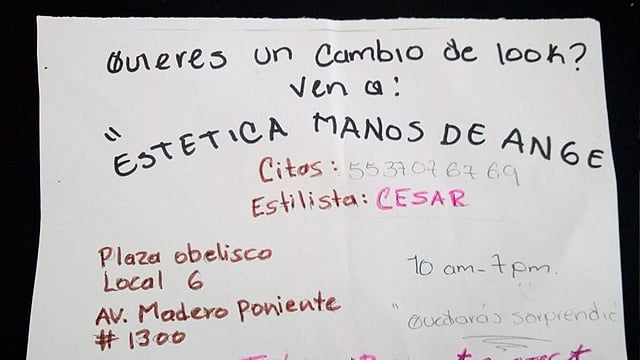 Quieres un cambio de look?
ven a:
"ESTETICA MANOS DE ANGE
Citas: 5537076769
Estilista: CESAR
Plaza obelisco
Local 6
10 am-7pm.
AV. Madero Poniente
#1300
"Quedarás sorprendid